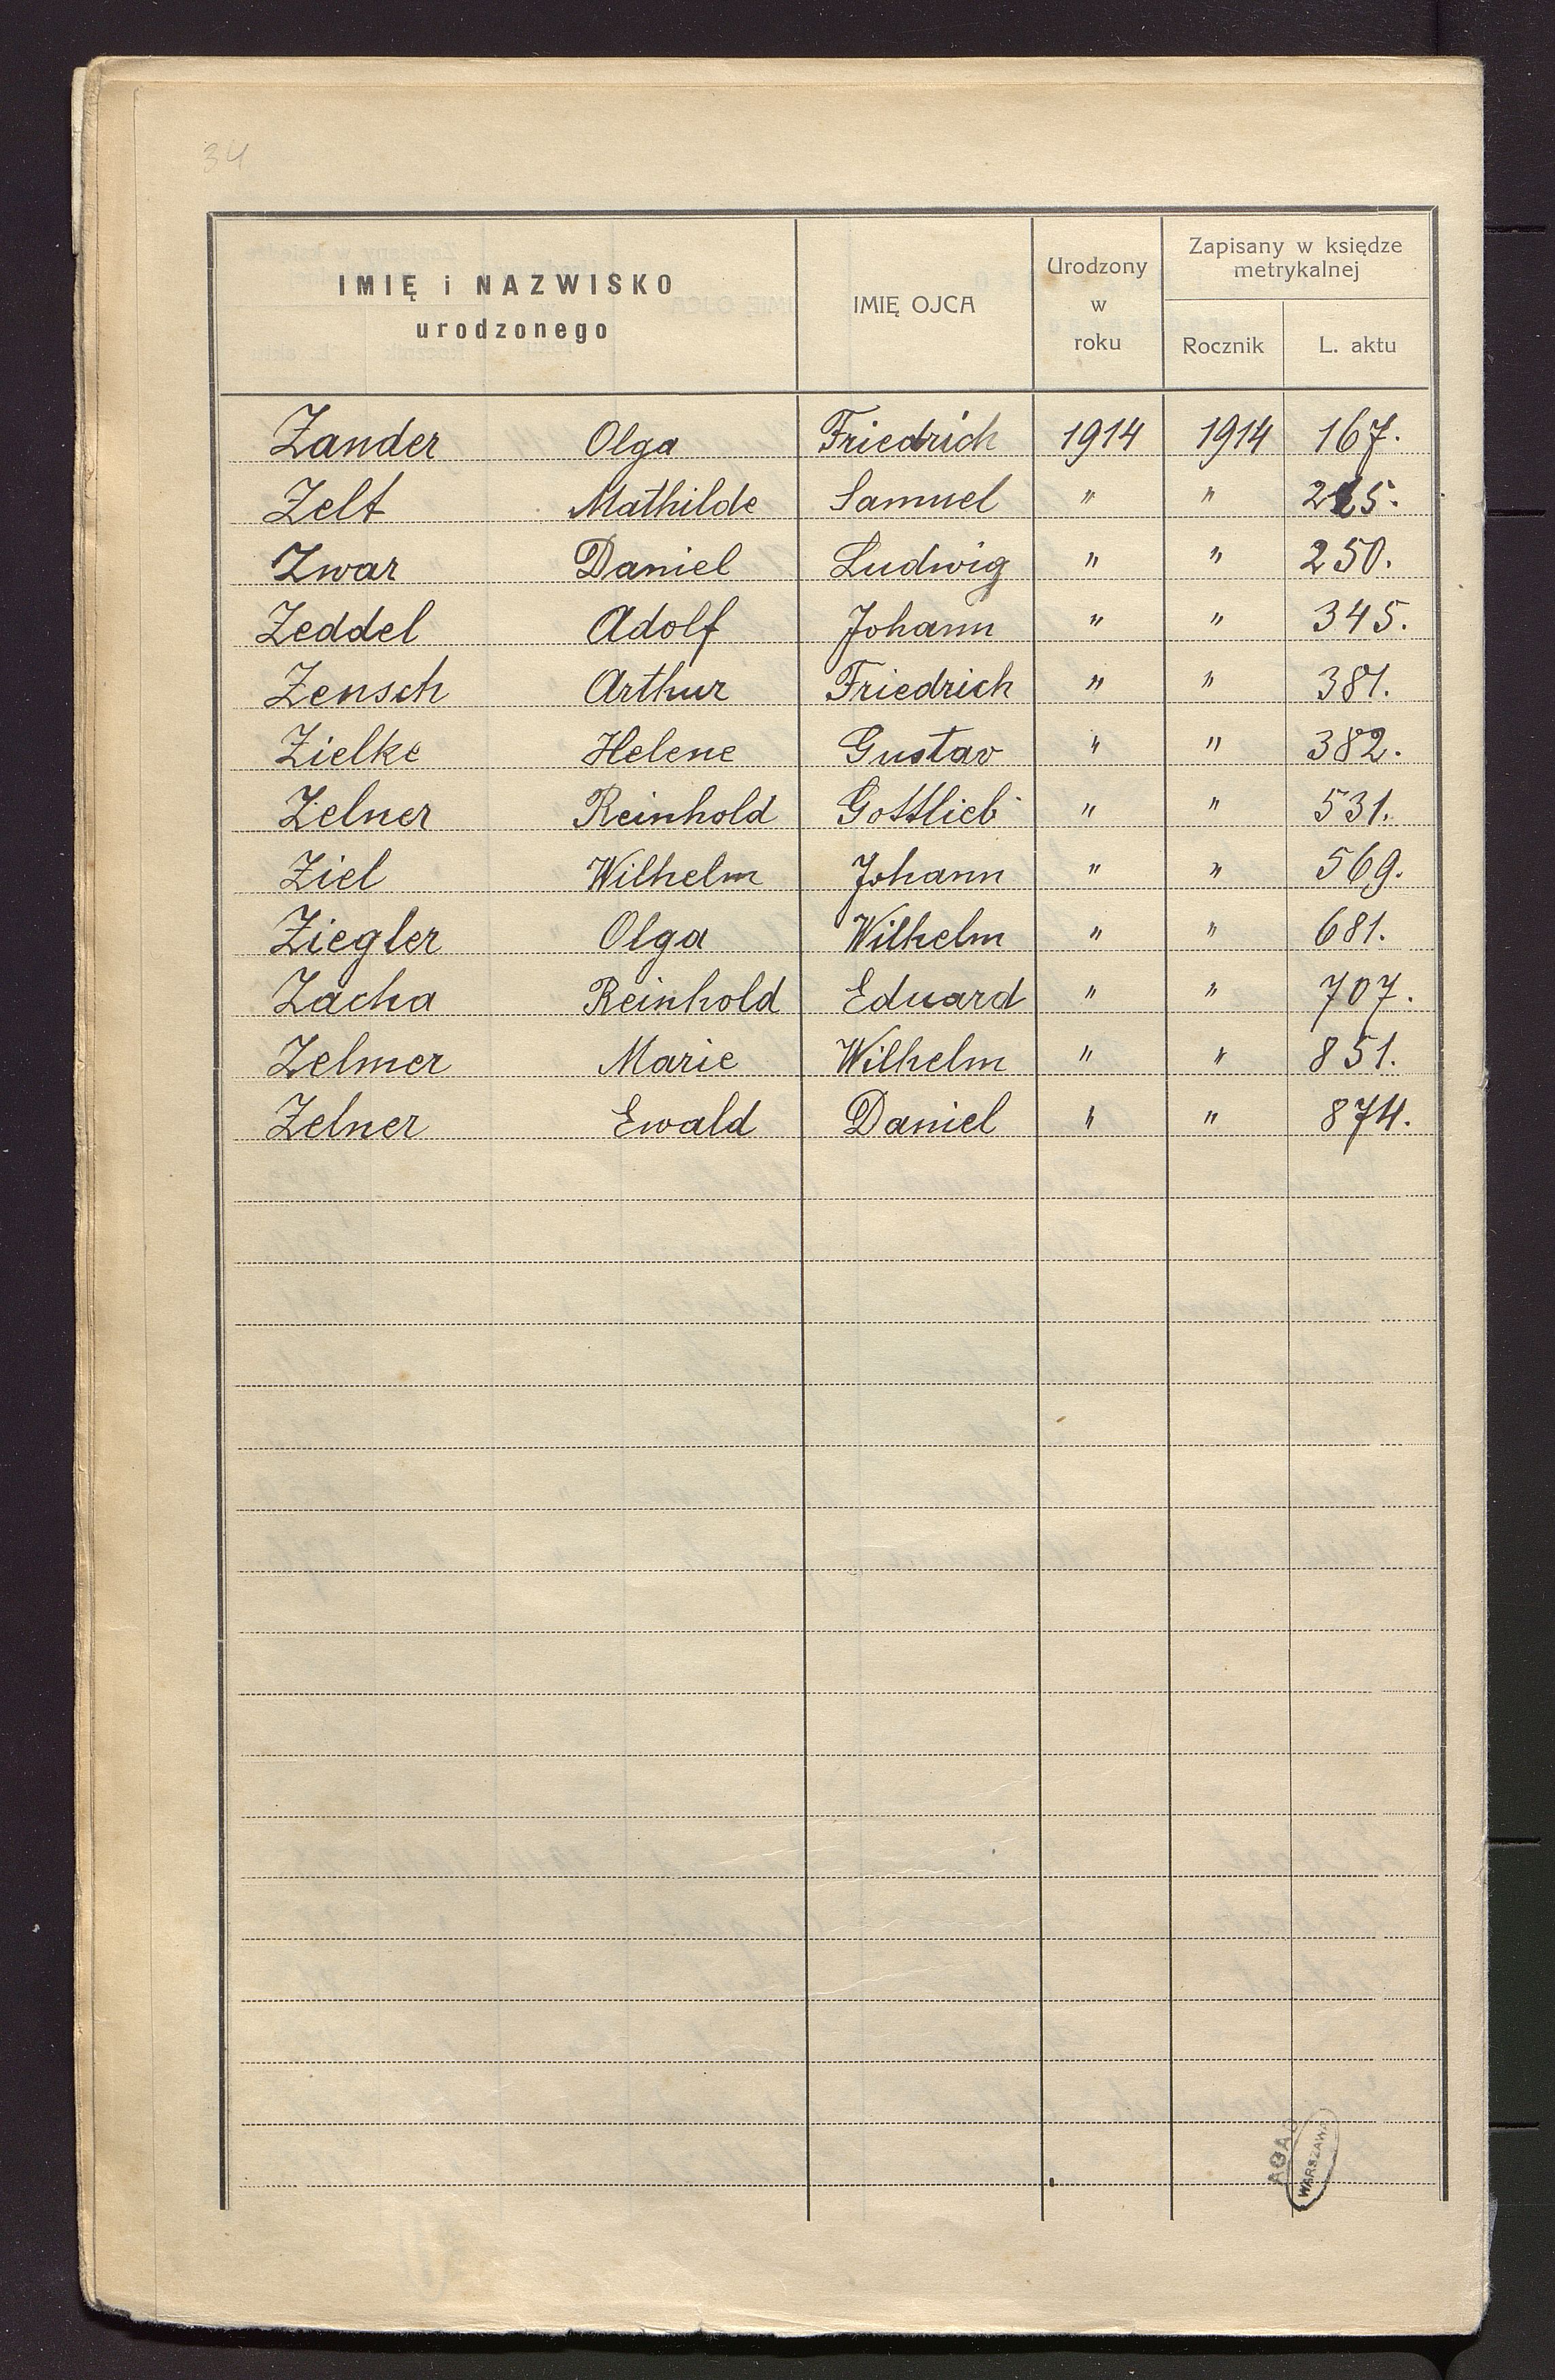 34
IMIĘ i NAZWISKO urodzonego IMIĘ OJCA Urodzony w roku Zapisany w księdze metrykalnej
Rocznik L. aktu
Zander Olga Friedrich 1914 1914 167.
Zelt Mathilde Samuel " "
Zwar Daniel Ludwig " " 250.
Zeddel Adolf Johann " " 345.
Zensch Arthur Friedrich " " 381.
Zielke Helene Gustav " " 382.
Zelner Reinhold Gottlieb " " 531.
Ziel Wilhelm Johann " " 569.
Ziegler Olga Wilhelm " " 681.
Zacha Reinhold Eduard " " 707.
Zelmer Marie Wilhelm " " 851.
Zelner Ewald Daniel " " 874.
AGAD
WARSZAWA